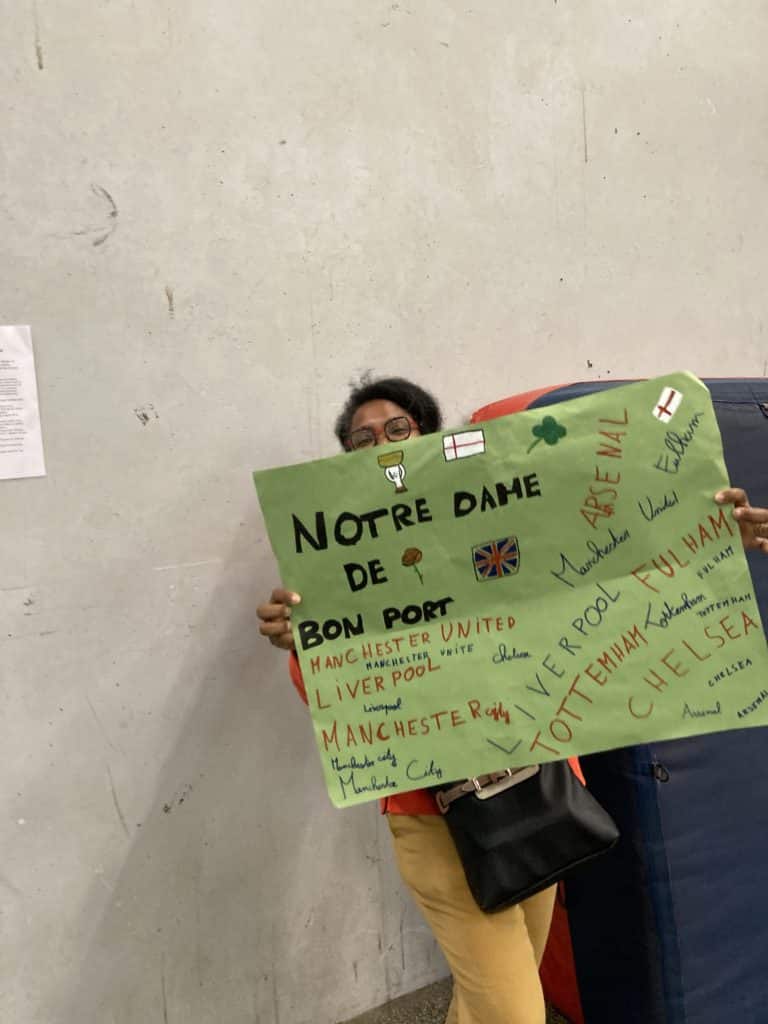 NOTRE DAME
DE
BON PORT
MANCHESTER UNITED
MANCHESTER UNITE
LIVERPOOL
Liverpool
MANCHESTER city
Manchester city
Manchester City
Chelsea
ARSENAL
Fulham
Manchester United
FULHAM
FULHAM
LIVERPOOL
Tottenham
TOTTEMHAM
TOTTEMHAM
CHELSEA
CHELSEA
Arsenal
ARSENAL